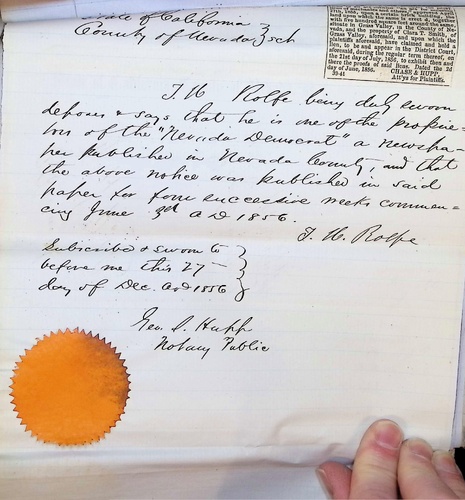 State of California
County of Nevada } sch
with five hundred square feet around the same,
situate in Grass Valley, in the County of Ne-
vada, and the property of Clara T. Smith, of
Grass Valley, aforesaid, and upon which the
plaintiffs aforesaid, have claimed and hold a
lien, to be and appear in the District Court,
aforesaid, during the regular term thereof, on
the 21st day of July, 1856, to exhibit then and
there the proofs of said liens. Dated the 2d
day of June, 1856. CHASE & HUPP,
39-41 Att'ys for Plaintiffs.
T. H. Rolfe being duly sworn
deposes & says that he is one of the proprie-
tors of the "Nevada Democrat" a newspa-
per published in Nevada County, and that
the above notice was published in said
paper for four successive weeks commen-
cing June 3d A D 1856.
T. H. Rolfe
Subscribed & sworn to
before me this 27
day of Dec. A D 1856
Geo. S. Hupp
Notary Public